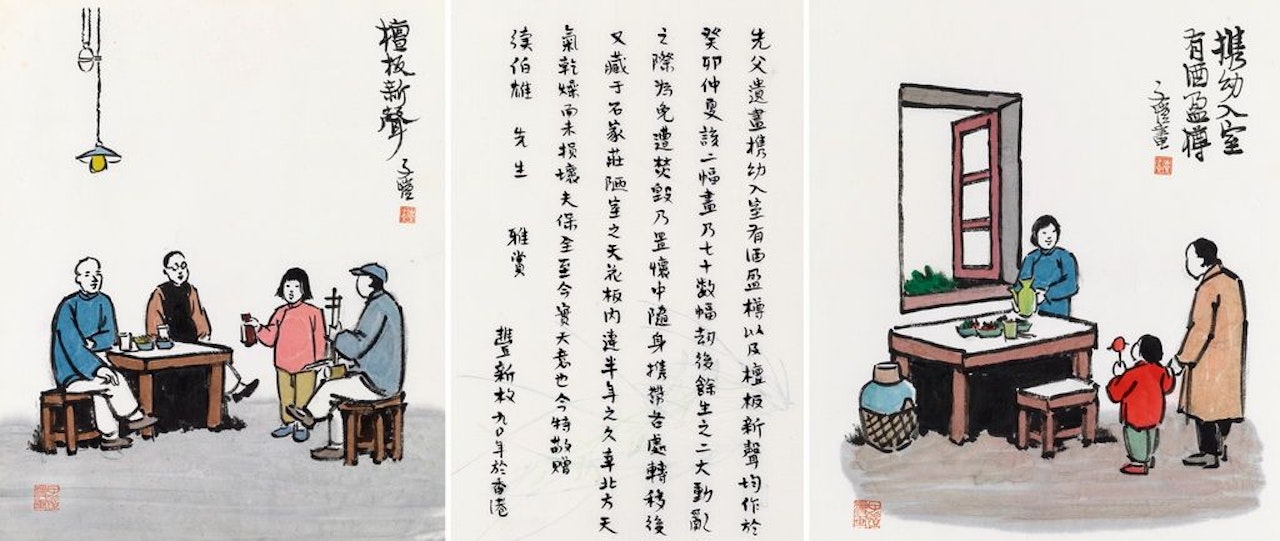 檀板新聲
子愷
先父遺畫携幼入室有酒盈樽以及檀板新聲均作於
癸卯仲夏該二幅畫乃七十数幅劫後餘生之二大動亂
之際為免遭焚毀乃置懷中隨身携帶各處轉移後
又藏于石家莊陋室之天花板内達半年之久幸北方天
氣乾燥而未損壞夫保全至今實天意也今特敬贈
伯雄 先生 雅賞
豐新枚 九〇年於香港
携幼入室
有酒盈樽
子愷畫